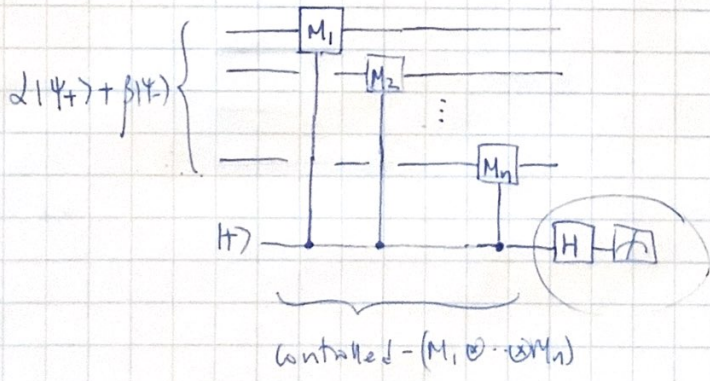 M₁
M₂
α|ψ₊⟩ + β|ψ₋⟩
⋮
Mₙ
|+⟩
H
controlled-(M₁⊗···⊗Mₙ)